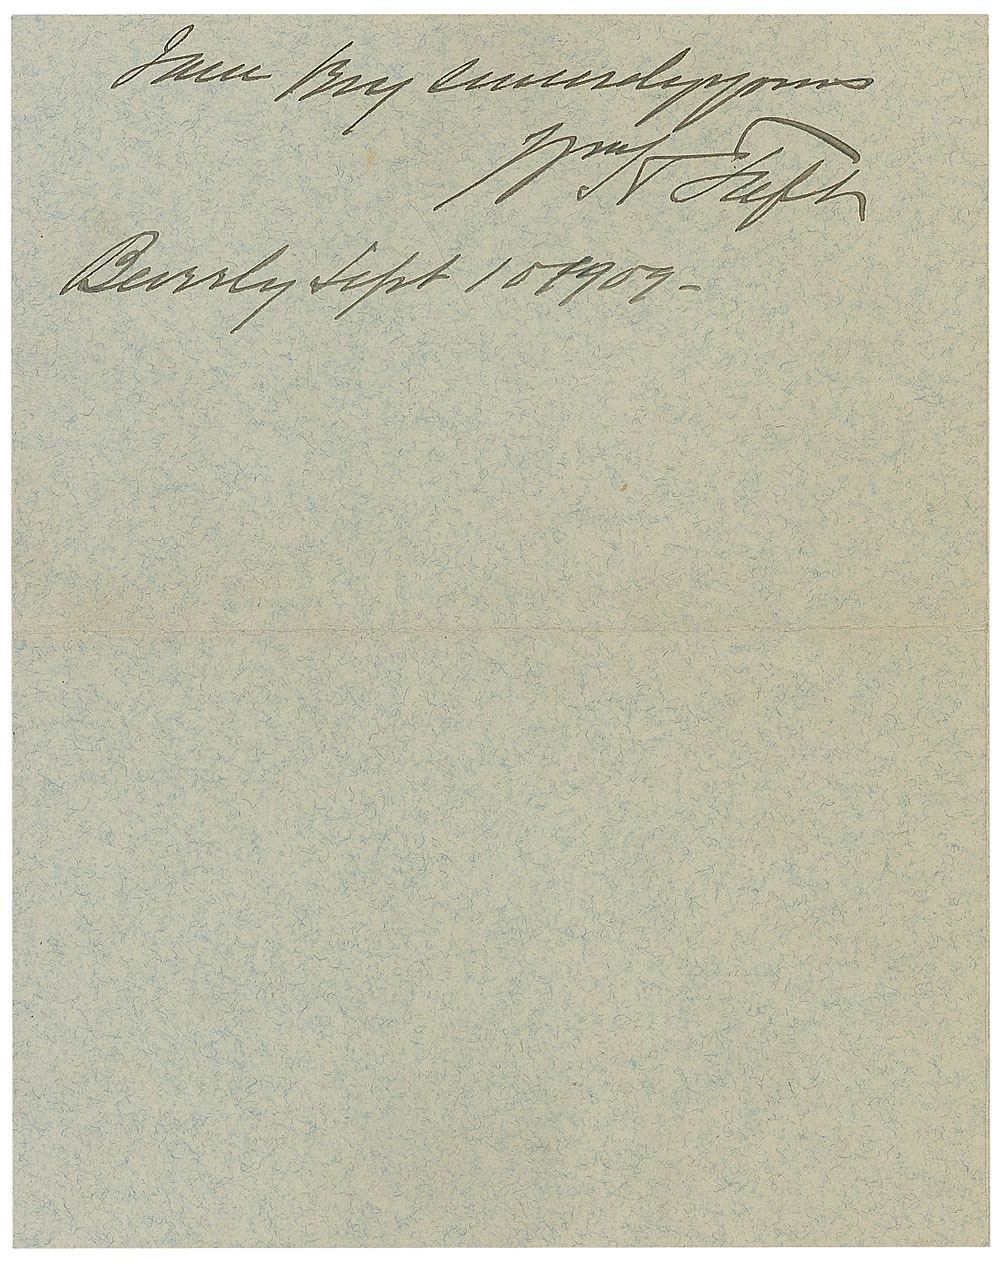 I am Very sincerely yours
Wm H Taft
Beverly Sept 10th 1909-